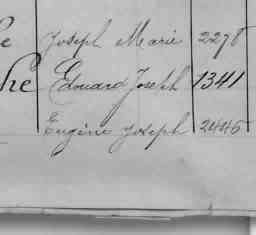 e Joseph Marie 2278
he Edouard Joseph 1341
Eugène Joseph 2445